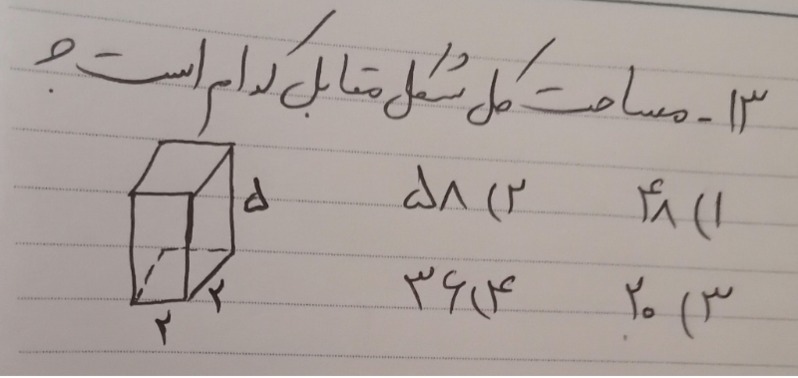 ۱۳ - مساحت کل شکل مقابل کدام است ؟
۱) ۴۸ ۲) ۵۸
۵
۳) ۲۰ ۴) ۳۶
۲
۲